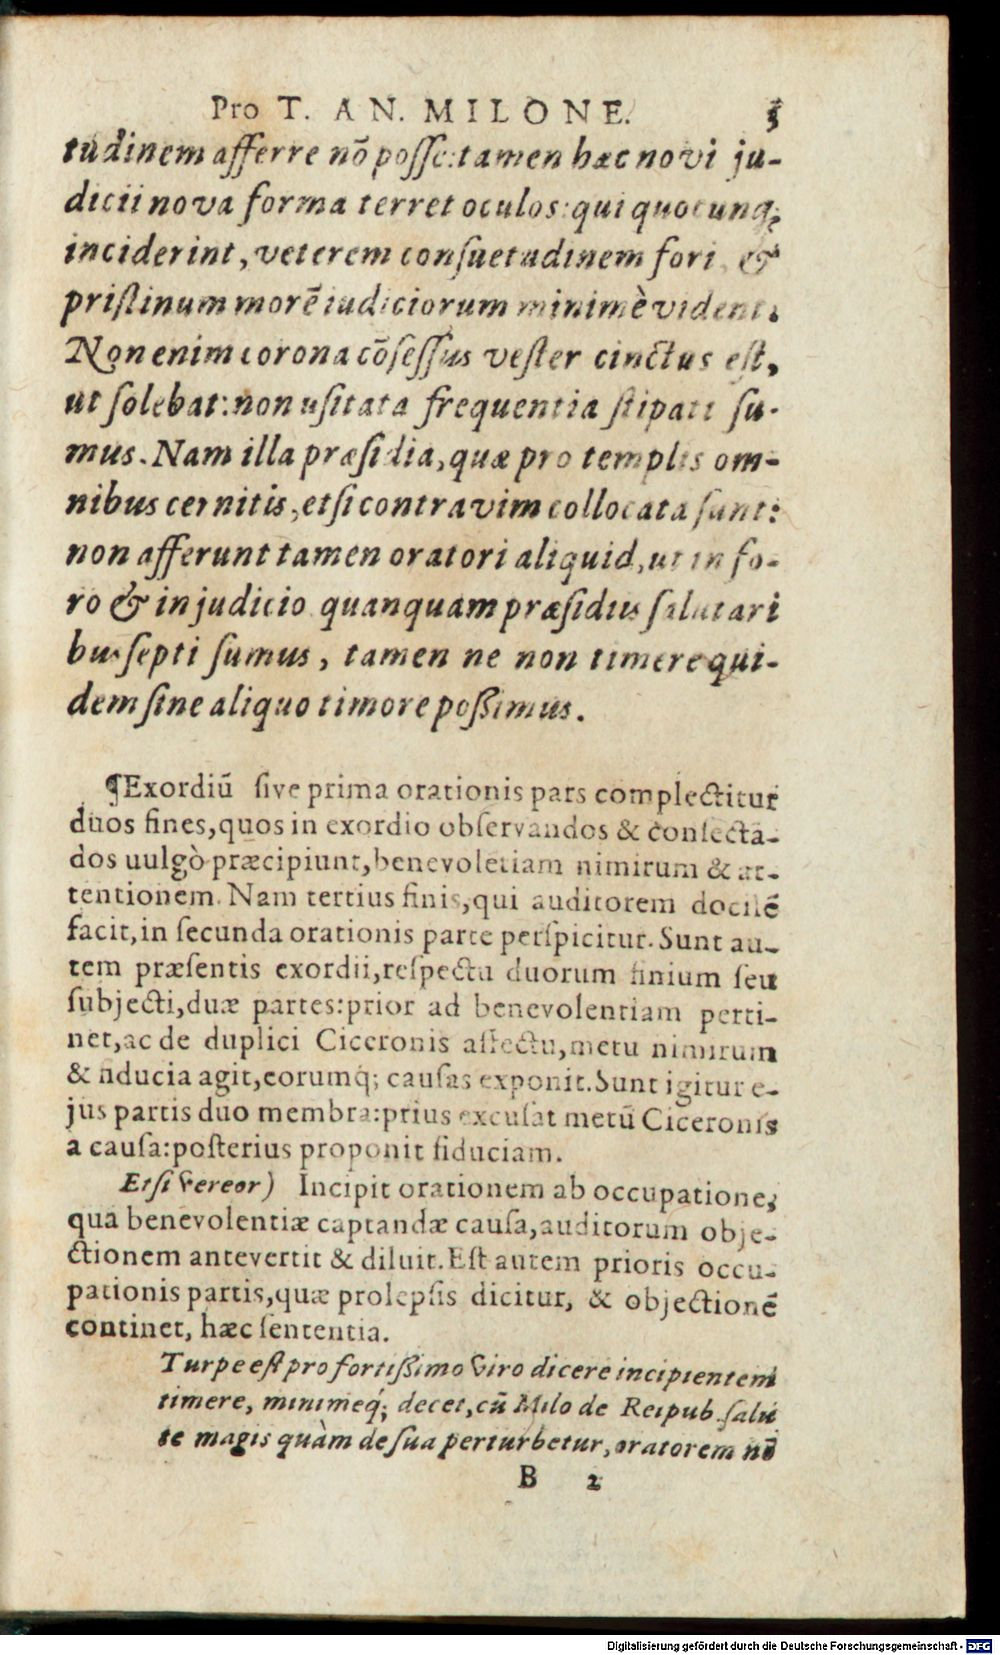 Pro T. AN. MILONE. 3
tudinem afferre nō posse: tamen hæc novi ju-
dicii nova forma terret oculos: qui quocunq;
inciderint, veterem consuetudinem fori &
pristinum morē iudiciorum minimè vident.
Non enim corona cōsessus vester cinctus est,
ut solebat: non usitata frequentia stipati su-
mus. Nam illa præsidia, quæ pro templis om-
nibus cernitis, etsi contra vim collocata sunt:
non afferunt tamen oratori aliquid, ut in fo-
ro & in judicio quanquam præsidiis salutari
bus septi sumus, tamen ne non timere qui-
dem sine aliquo timore possimus.
¶Exordiū sive prima orationis pars complectitur
duos fines, quos in exordio observandos & consectā-
dos uulgò præcipiunt, benevolētiam nimirum & at-
tentionem. Nam tertius finis, qui auditorem docilē
facit, in secunda orationis parte perspicitur. Sunt au-
tem præsentis exordii, respectu duorum finium seu
subjecti, duæ partes: prior ad benevolentiam perti-
net, ac de duplici Ciceronis affectu, metu nimirum
& fiducia agit, eorumq; causas exponit. Sunt igitur e-
jus partis duo membra: prius excusat metū Ciceronis
a causa: posterius proponit fiduciam.
Etsi vereor) Incipit orationem ab occupatione,
qua benevolentiæ captandæ causa, auditorum obje-
ctionem antevertit & diluit. Est autem prioris occu-
pationis partis, quæ prolepsis dicitur, & objectionē
continet, hæc sententia.
Turpe est pro fortissimo viro dicere incipientem
timere, minimeq́; decet, cū Milo de Reipub. salu
te magis quàm de sua perturbetur, oratorem nō
B 2
Digitalisierung gefördert durch die Deutsche Forschungsgemeinschaft - DFG